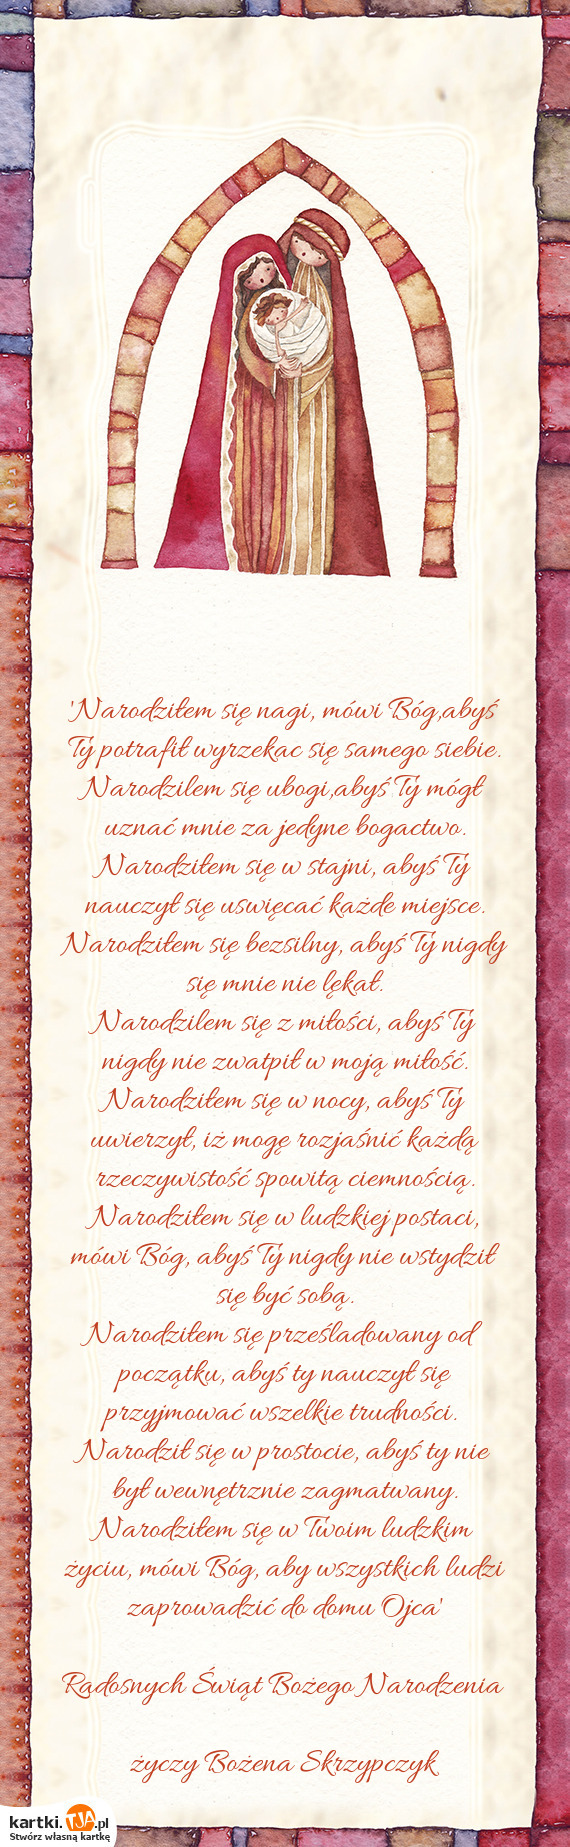 'Narodziłem się nagi, mówi Bóg,abyś
Ty potrafił wyrzekac się samego siebie.
Narodzilem się ubogi,abyś Ty mógł
uznać mnie za jedyne bogactwo.
Narodziłem się w stajni, abyś Ty
nauczył się uswięcać każde miejsce.
Narodziłem się bezsilny, abyś Ty nigdy
się mnie nie lękał.
Narodzilem się z miłości, abyś Ty
nigdy nie zwatpił w moją miłość.
Narodziłem się w nocy, abyś Ty
uwierzył, iż mogę rozjaśnić każdą
rzeczywistość spowitą ciemnością.
Narodziłem się w ludzkiej postaci,
mówi Bóg, abyś Ty nigdy nie wstydził
się być sobą.
Narodziłem się prześladowany od
początku, abyś ty nauczył się
przyjmować wszelkie trudności.
Narodził się w prostocie, abyś ty nie
był wewnętrznie zagmatwany.
Narodziłem się w Twoim ludzkim
życiu, mówi Bóg, aby wszystkich ludzi
zaprowadzić do domu Ojca'
Radosnych Świąt Bożego Narodzenia
życzy Bożena Skrzypczyk
kartki.TJA.pl
Stwórz własną kartkę